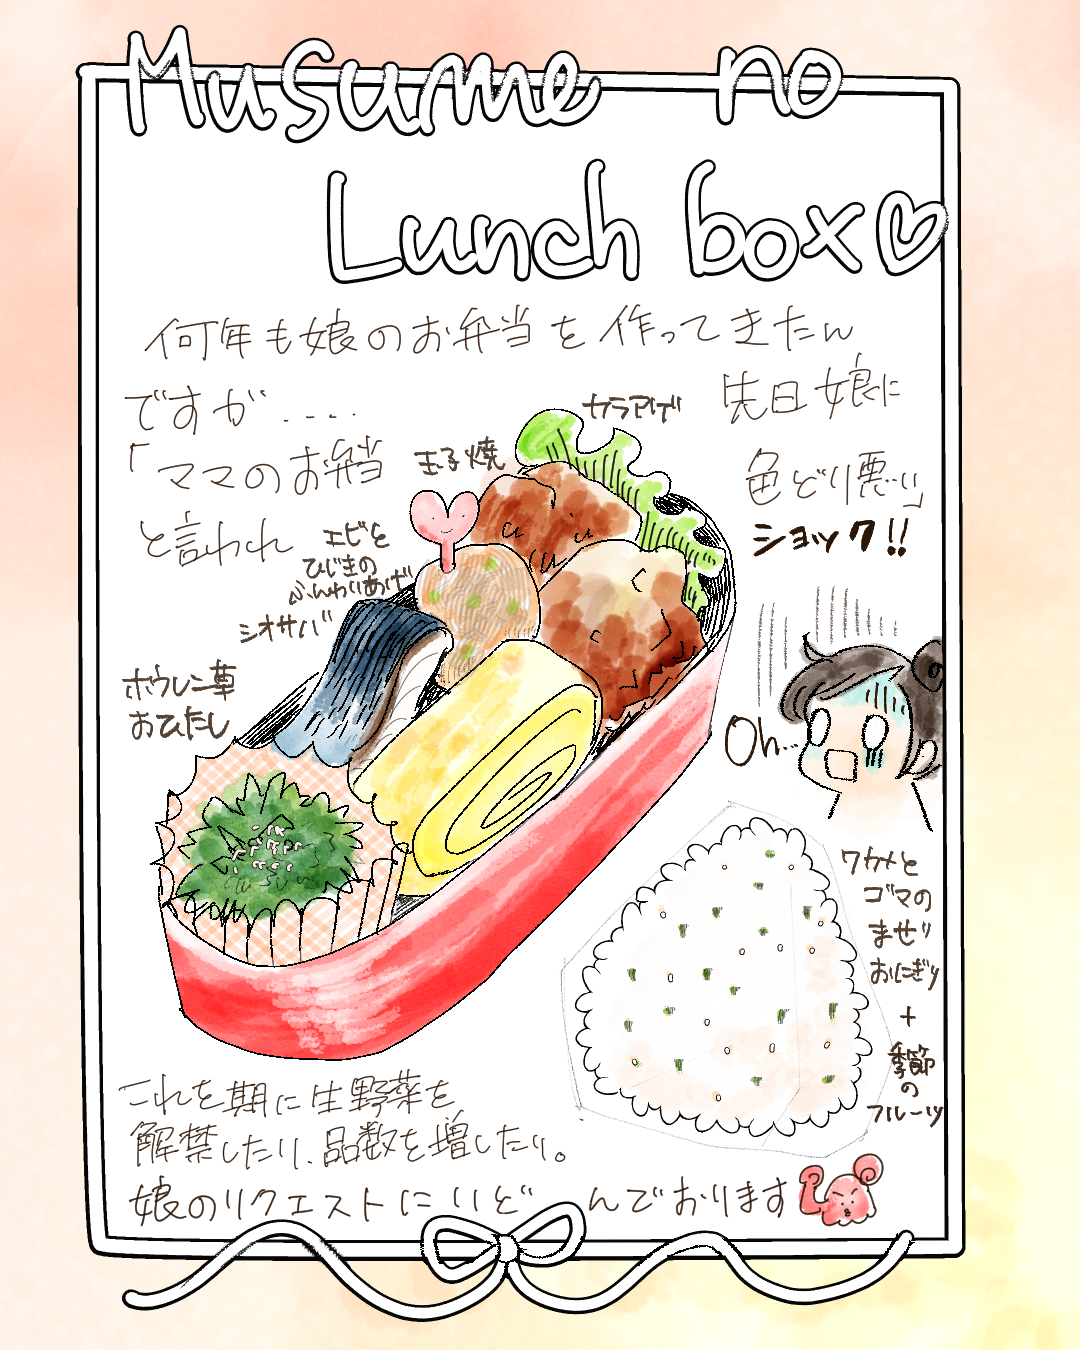 Musume no
Lunch box♡
何年も娘のお弁当を作ってきたん
ですが....
先日娘に
「ママのお弁当
色どり悪い」
と言われ
ショック!!
カラアゲ
玉子焼
エビと
ひじきの
ふんわりあげ
シオサバ
ホウレン草
おひたし
Oh...
ワカメと
ゴマの
ませり
おにぎり
+
季節
の
フルーツ
これを期に生野菜を
解禁したり、品数を増したり。
娘のリクエストにいどんでおります